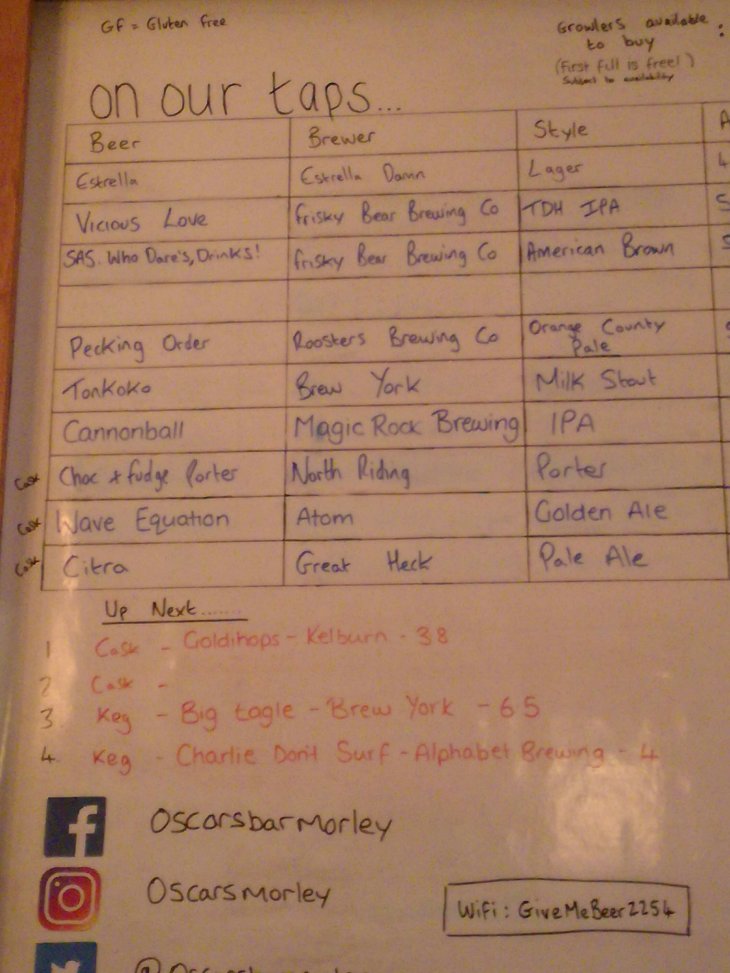 GF = Gluten free
Growlers available :
to buy
(First fill is free!)
Subject to availability
on our taps...
Beer Brewer Style A
Estrella Estrella Damn Lager 4
Vicious Love Frisky Bear Brewing Co TDH IPA 5
SAS. Who Dare's, Drinks! Frisky Bear Brewing Co American Brown 5
Pecking Order Roosters Brewing Co Orange County
Pale
Tonkoko Brew York Milk Stout
Cannonball Magic Rock Brewing IPA
Cask Choc + fudge Porter North Riding Porter
Cask Wave Equation Atom Golden Ale
Cask Citra Great Heck Pale Ale
Up Next.......
1 Cask - Goldihops - Kelburn - 38
2 Cask -
3 Keg - Big Eagle - Brew York - 65
4 Keg - Charlie Don't Surf - Alphabet Brewing - 4
f Oscarsbarmorley
Oscarsmorley
WiFi: GiveMeBeer2254